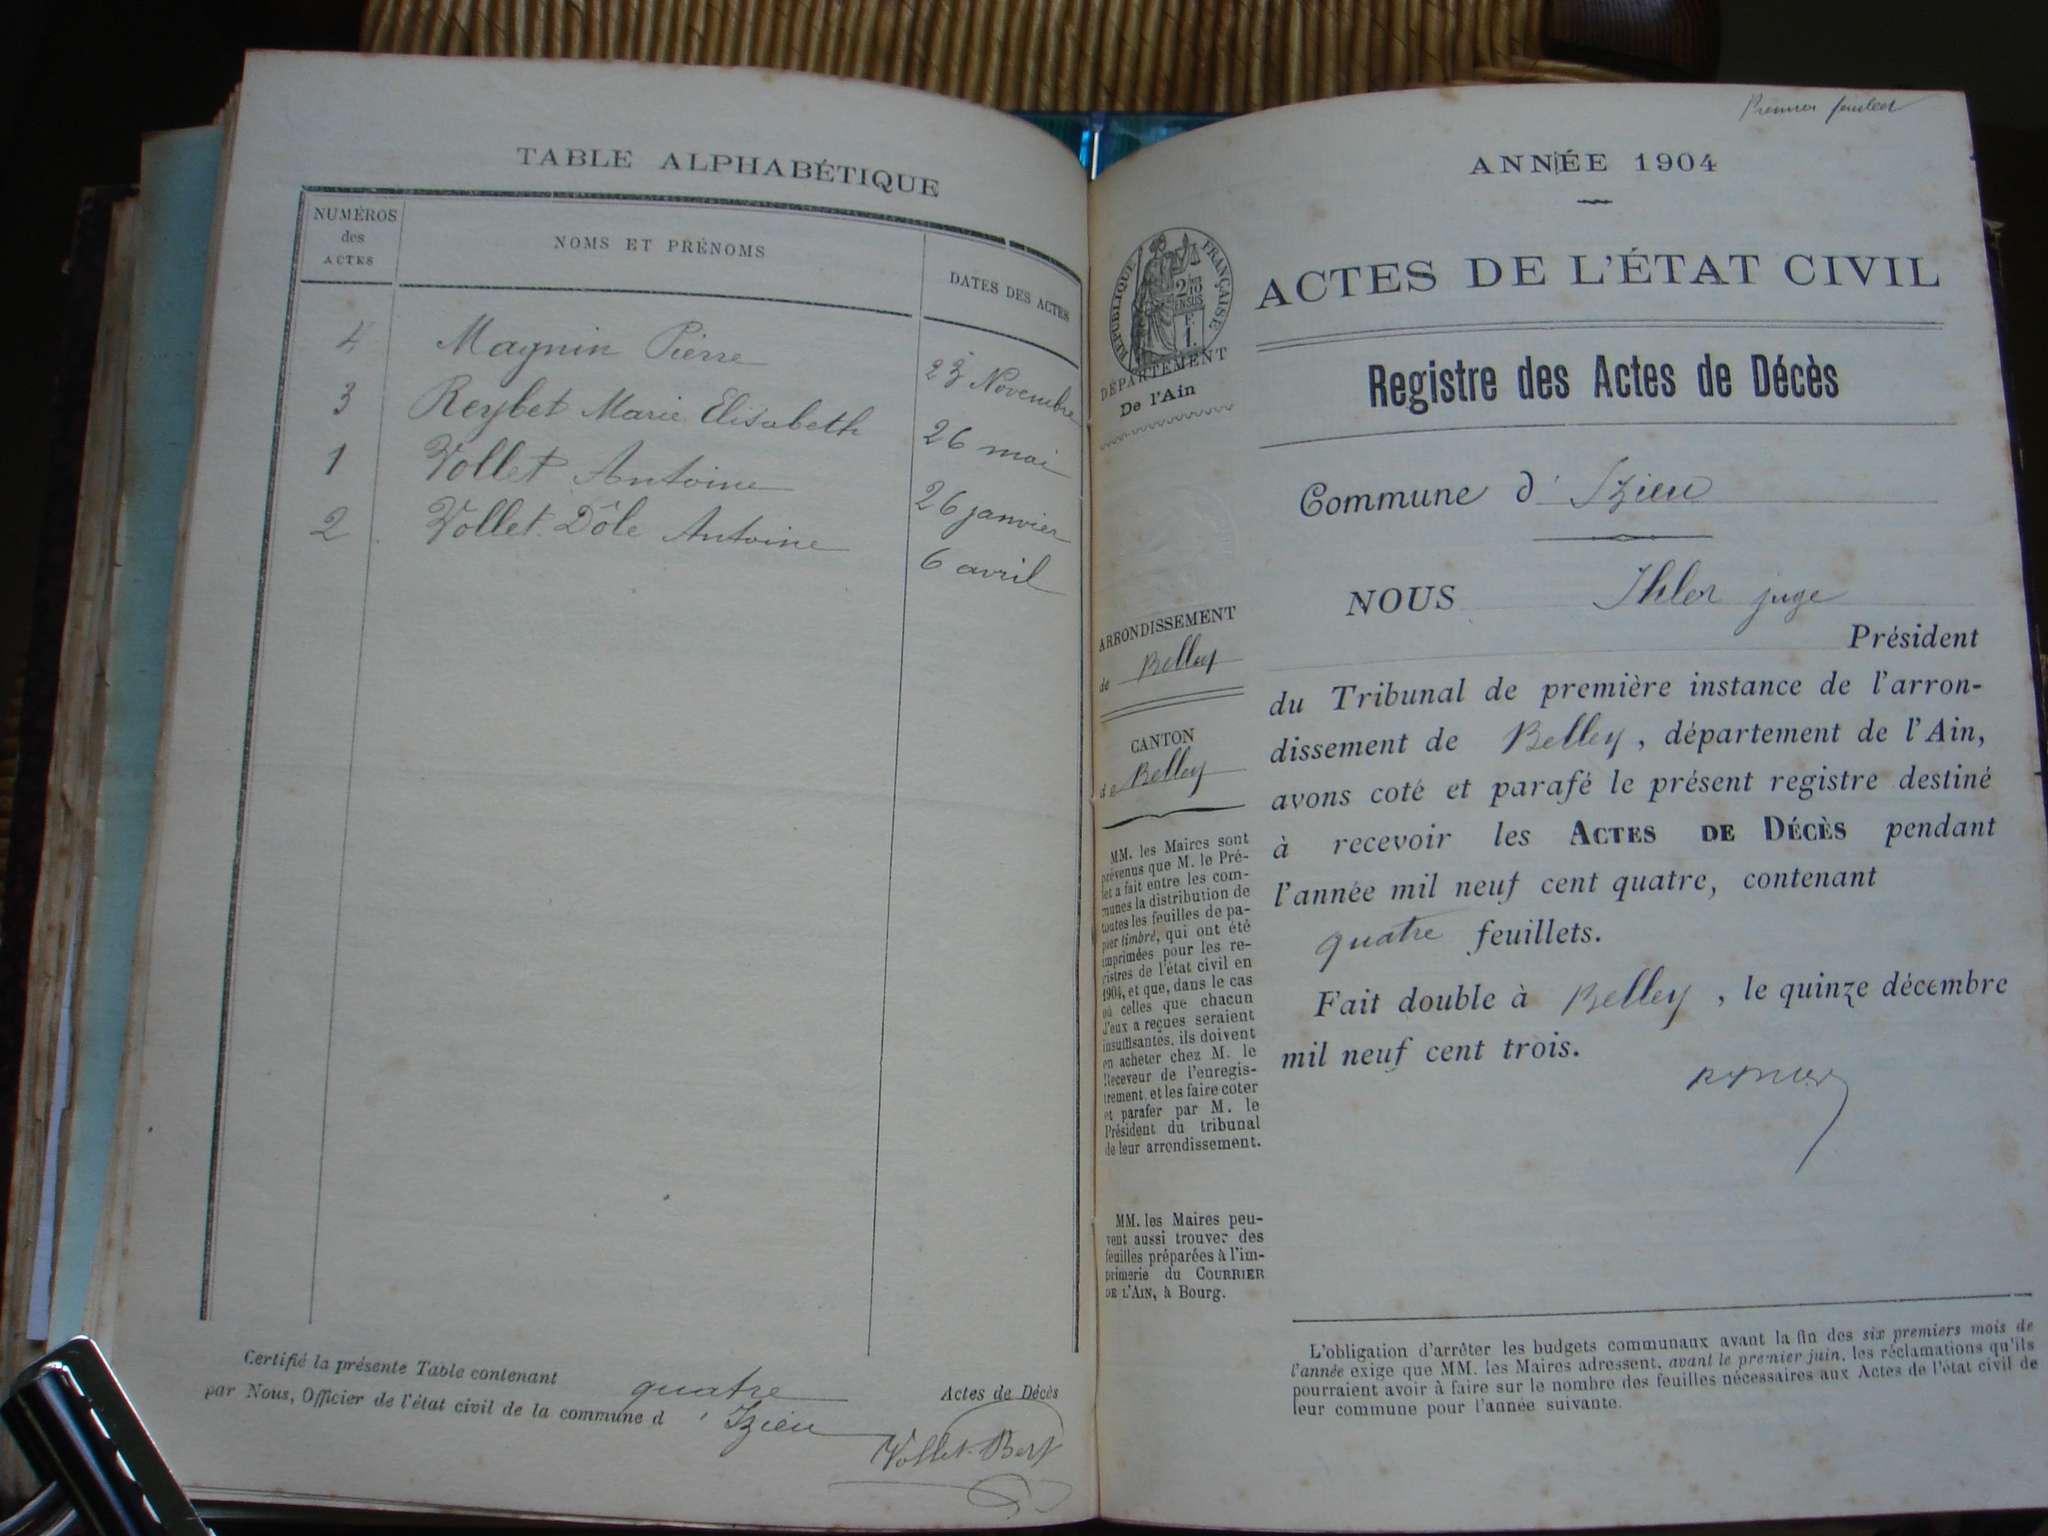 TABLE ALPHABÉTIQUE
NUMÉROS
des
ACTES
NOMS ET PRÉNOMS
DATES DES ACTES
4 Magnin Pierre 23 Novembre
3 Reybet Marie Elisabeth 26 mai
1 Vollet Antoine 26 janvier
2 Vollet Dôle Antoine 6 avril
Certifié la présente Table contenant quatre Actes de Décès
par Nous, Officier de l'état civil de la commune d'Izieu
Vollet-Berf
Premier feuillet
ANNÉE 1904
ACTES DE L'ÉTAT CIVIL
Registre des Actes de Décès
Commune d'Izieu
NOUS Ihler juge
Président
du Tribunal de première instance de l'arron-
dissement de Belley, département de l'Ain,
avons coté et parafé le présent registre destiné
à recevoir les ACTES DE DÉCÈS pendant
l'année mil neuf cent quatre, contenant
quatre feuillets.
Fait double à Belley, le quinze décembre
mil neuf cent trois.
RÉPUBLIQUE FRANÇAISE
DÉPARTEMENT
De l'Ain
ARRONDISSEMENT
de Belley
CANTON
de Belley
MM. les Maires sont
prévenus que M. le Pré-
fet a fait entre les com-
munes la distribution de
toutes les feuilles de pa-
pier timbré, qui ont été
imprimées pour les re-
gistres de l'état civil en
1904, et que, dans le cas
où celles que chacun
d'eux a reçues seraient
insuffisantes, ils doivent
en acheter chez M. le
Receveur de l'enregis-
trement, et les faire coter
et parafer par M. le
Président du tribunal
de leur arrondissement.
MM. les Maires peu-
vent aussi trouver des
feuilles préparées à l'im-
primerie du COURRIER
DE L'AIN, à Bourg.
L'obligation d'arrêter les budgets communaux avant la fin des six premiers mois de
l'année exige que MM. les Maires adressent, avant le premier juin, les réclamations qu'ils
pourraient avoir à faire sur le nombre des feuilles nécessaires aux Actes de l'état civil de
leur commune pour l'année suivante.